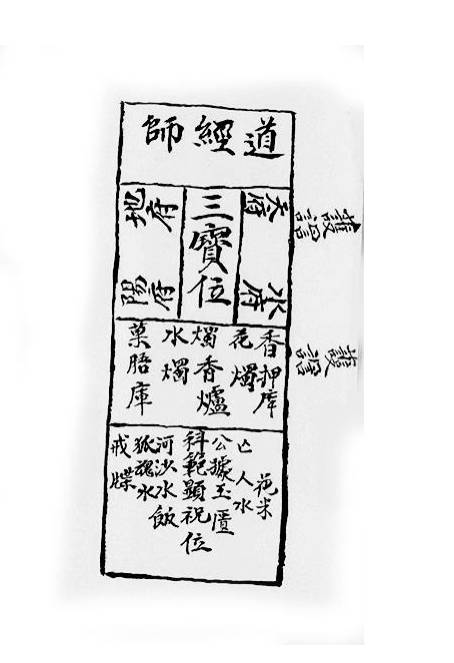 道經師
三寶位
天府
水府
地府
陽府
香押庫
花燭
燭香爐
水燭
菓腊庫
花米
亡人水
公據玉匱
科範顯祝位
河沙水飯
狐魂水
戒牒